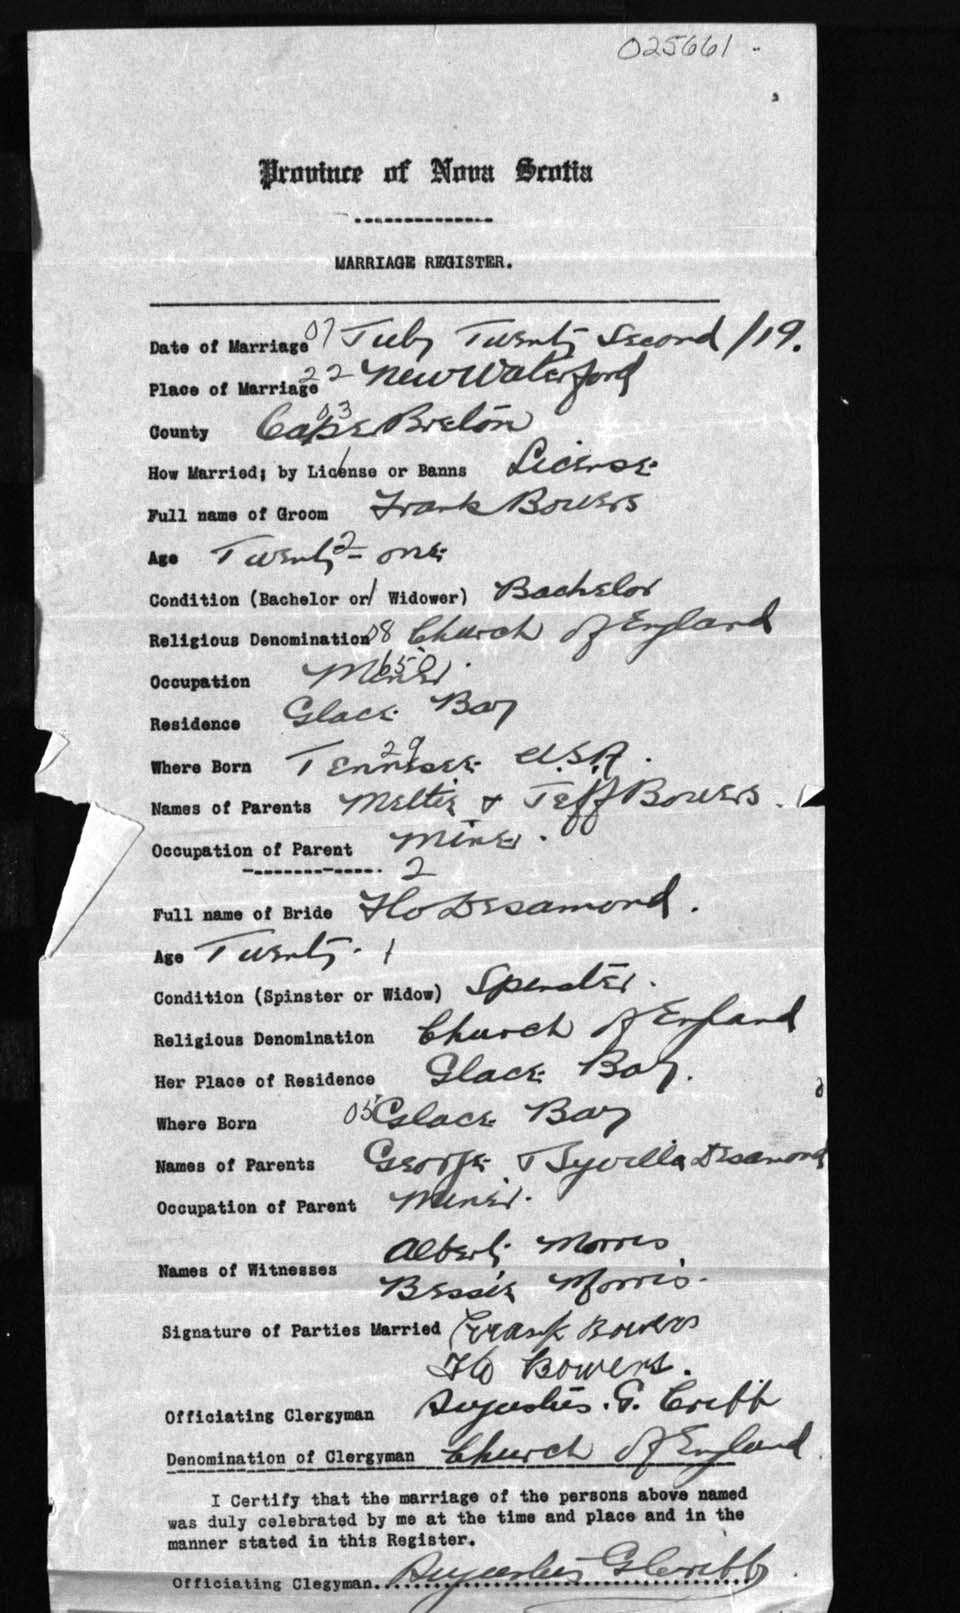 025661
Province of Nova Scotia
MARRIAGE REGISTER.
Date of Marriage 07 July Twenty Second /19.
Place of Marriage 22 New Waterford
County 03 Cape Breton
How Married; by License or Banns License
Full name of Groom Frank Bowers
Age Twenty-one 2
Condition (Bachelor or Widower) Bachelor
Religious Denomination 08 Church of England
Occupation Miner 650
Residence Glace Bay
Where Born Tennesee 29 U.S.A.
Names of Parents Meltie & Jeff Bowers
Occupation of Parent Miner.
2
Full name of Bride Flo Desamond.
Age Twenty. 1
Condition (Spinster or Widow) Spinster.
Religious Denomination Church of England
Her Place of Residence Glace Bay.
Where Born 05 Glace Bay
Names of Parents George & Sywilla Desamond
Occupation of Parent Miner.
Names of Witnesses Albert Morris
Bessie Morris.
Signature of Parties Married Frank Bowers
Flo Bowers.
Officiating Clergyman Augustus. G. Cribb
Denomination of Clergyman Church of England
I Certify that the marriage of the persons above named
was duly celebrated by me at the time and place and in the
manner stated in this Register.
Officiating Clegyman. Augustus G Cribb